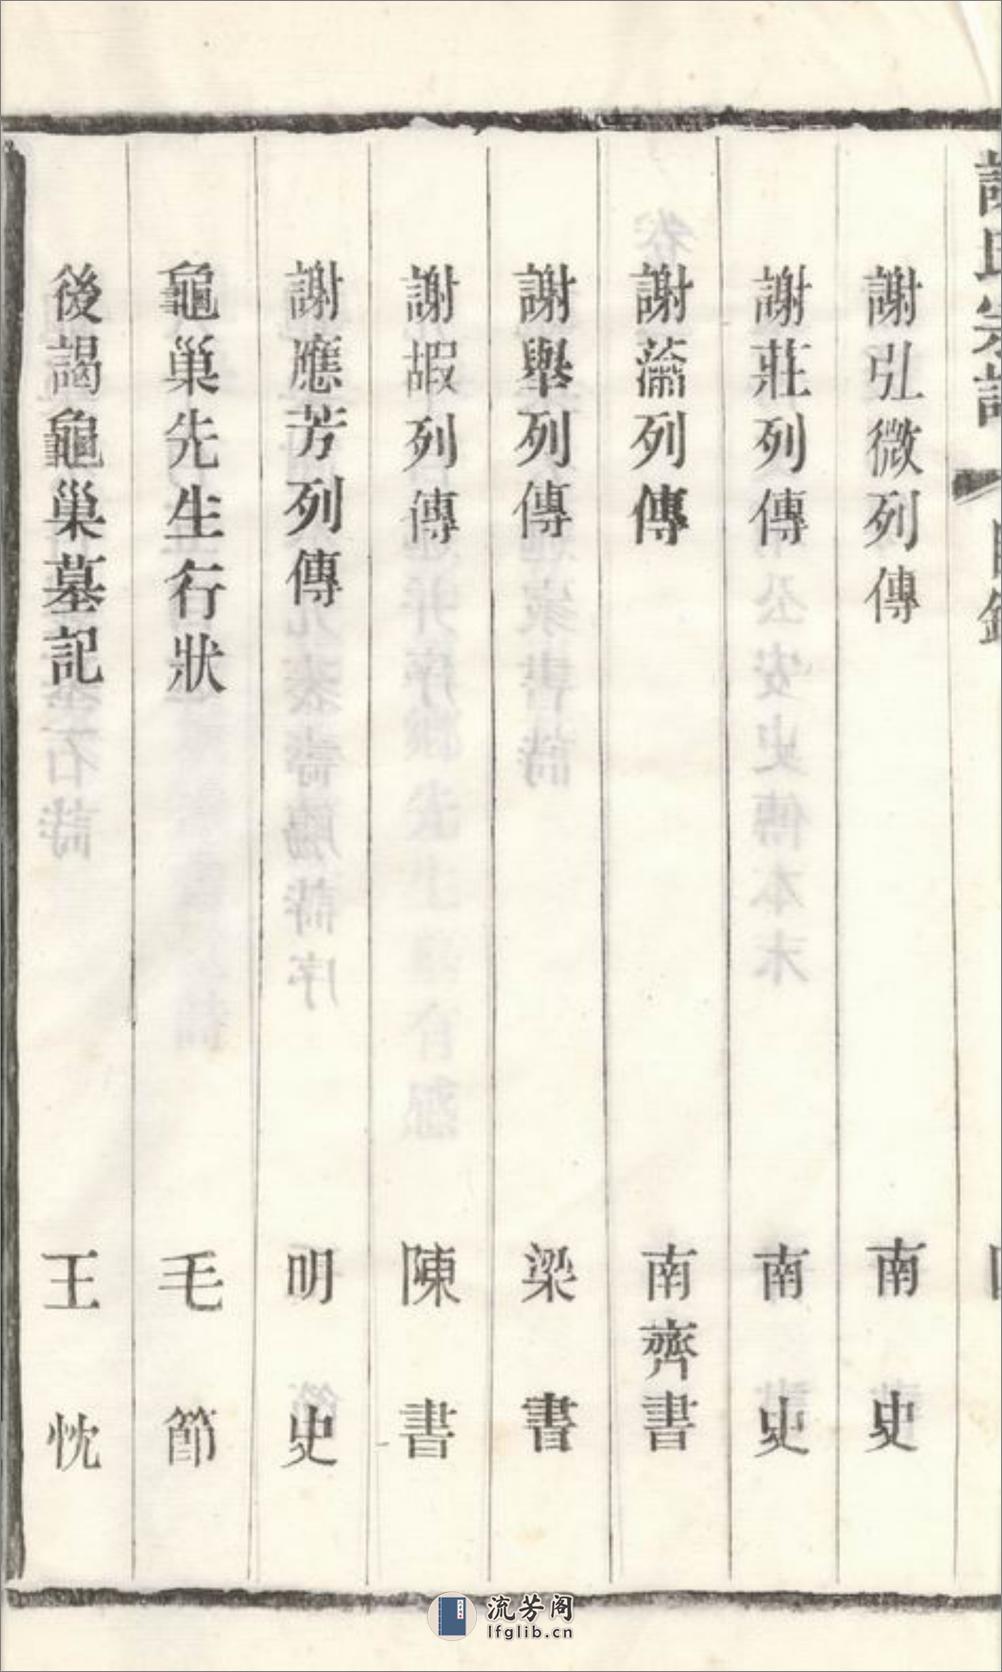 謝氏宗譜 目錄
謝弘微列傳 南史
謝莊列傳 南史
謝瀹列傳 南齊書
謝舉列傳 梁書
謝嘏列傳 陳書
謝應芳列傳 明史
龜巢先生行狀 毛節
後謁龜巢墓記 王忱
流芳阁
lfglib.cn